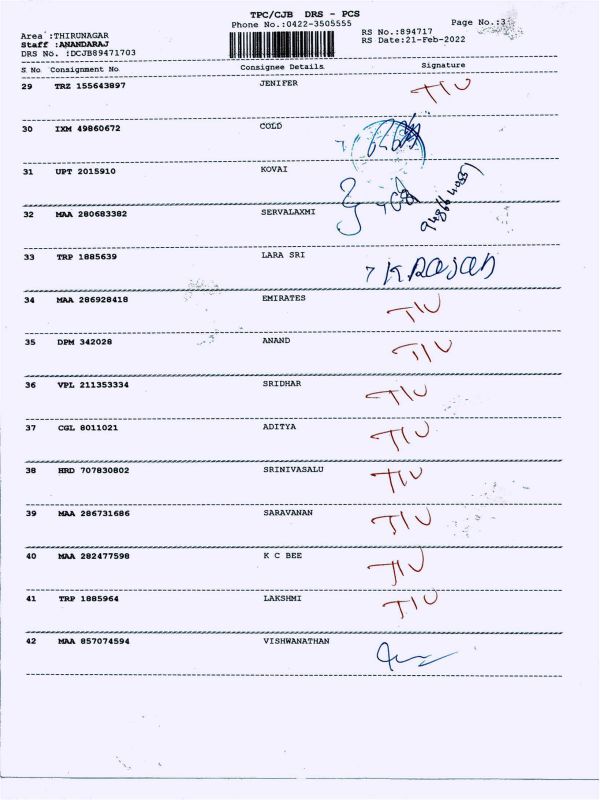 TPC/CJB DRS - PCS
Phone No.:0422-3505555
Page No.:3
Area :THIRUNAGAR
Staff :ANANDARAJ
DRS No. :DCJB89471703
RS No.:894717
RS Date:21-Feb-2022
S No Consignment No Consignee Details Signature
29 TRZ 155643897 JENIFER TIU
30 IXM 49860672 COLD
31 UPT 2015910 KOVAI
32 MAA 280683382 SERVALAXMI
33 TRP 1885639 LARA SRI K Rajan
34 MAA 286928418 EMIRATES TIU
35 DPM 342028 ANAND TIU
36 VPL 211353334 SRIDHAR TIU
37 CGL 8011021 ADITYA TIU
38 HRD 707830802 SRINIVASALU TIU
39 MAA 286731686 SARAVANAN TIU
40 MAA 282477598 K C BEE TIU
41 TRP 1885964 LAKSHMI TIU
42 MAA 857074594 VISHWANATHAN